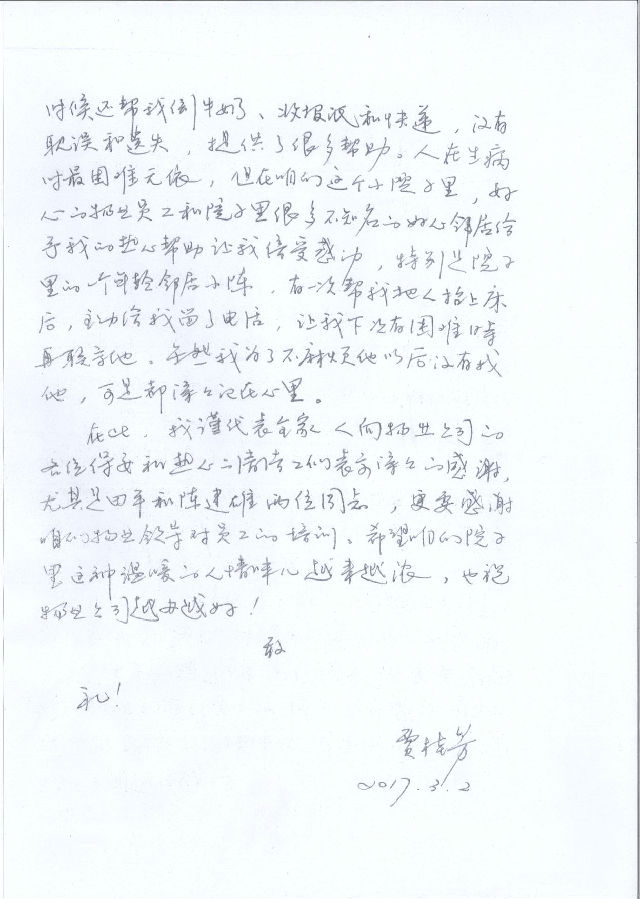 时候还帮我倒牛奶、收报纸和快递，没有
耽误和遗失，提供了很多帮助。人在生病
时最困难无依，但在咱们这个小院子里，好
心的物业员工和院子里很多不知名的好心邻居给
予我的热心帮助让我倍受感动，特别是院子
里的一个年轻邻居小陈，有一次帮我把人抬上床
后，主动给我留了电话，让我下次有困难时
再联系他。虽然我为了不麻烦他以后没有找
他，可是都深深记在心里。
在此，我谨代表全家人向物业公司的
各位保安和热心的清洁工们表示深深的感谢，
尤其是田平和陈建雄两位同志，更要感谢
咱们物业领导对员工的培训。希望咱们院子
里这种温暖的人情味儿越来越浓，也祝
物业公司越办越好！
致
礼！
贾桂芳
2017.3.2